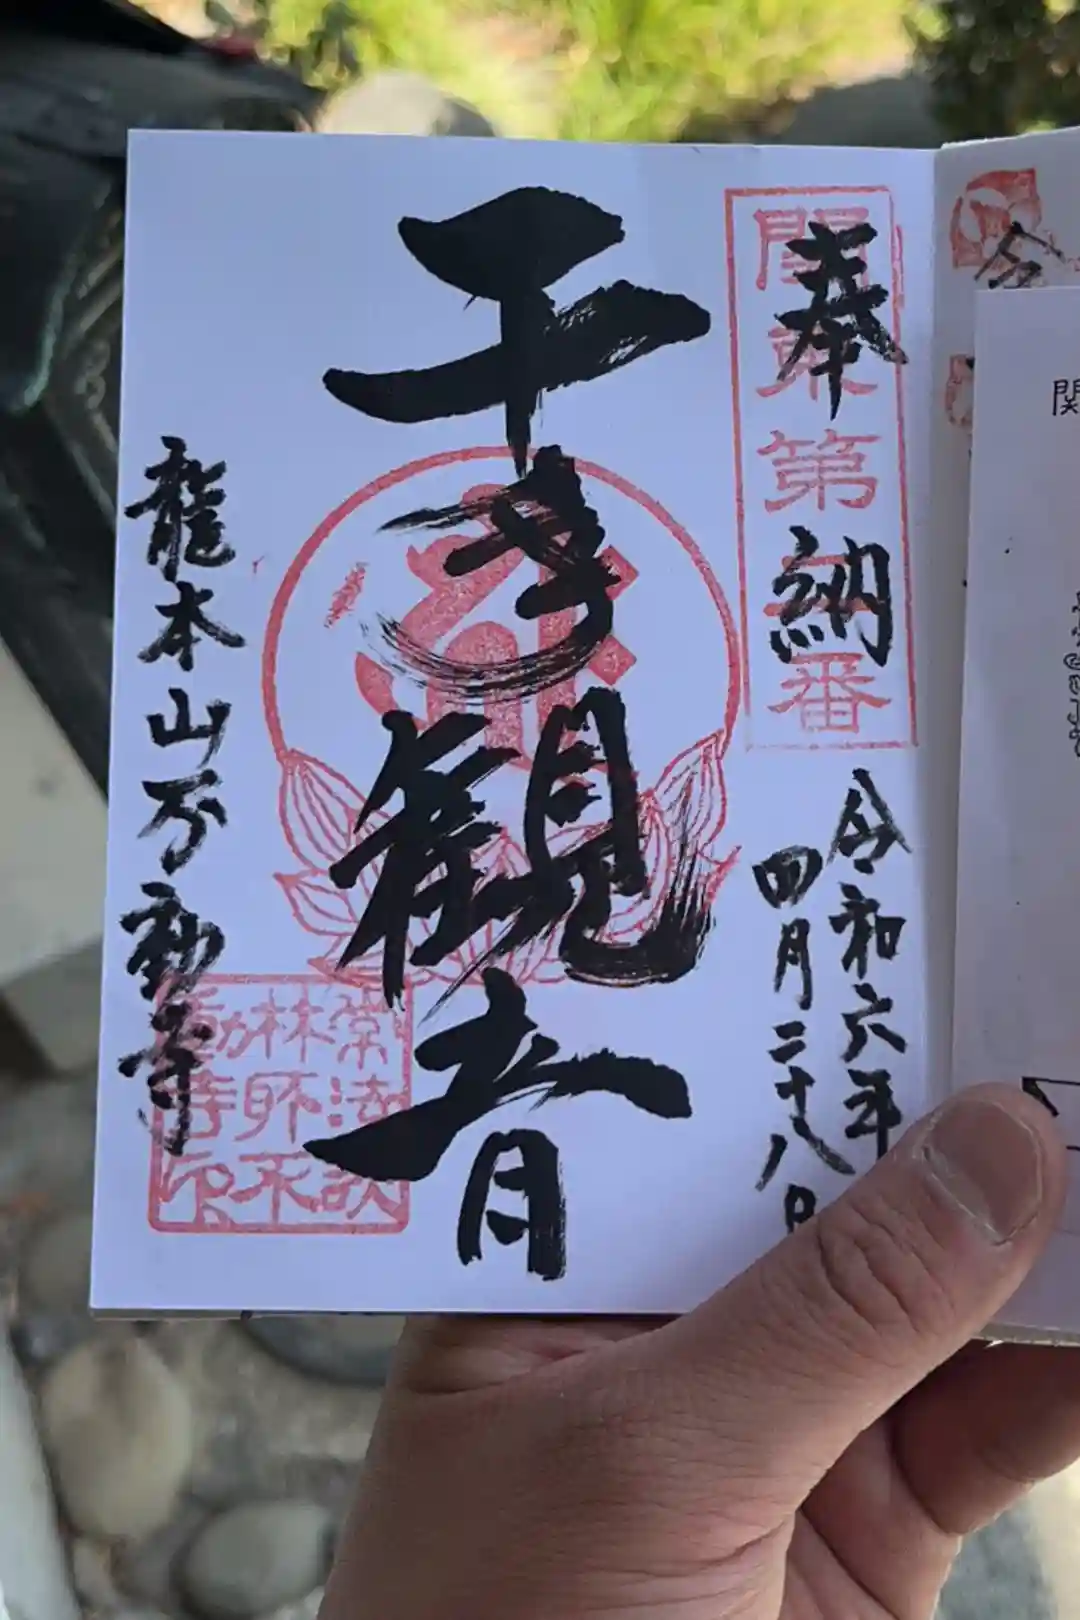 奉納
関東第 番
令和六年
四月二十八日
千手観音
龍本山不動寺
常法談
林所不
動寺印
関